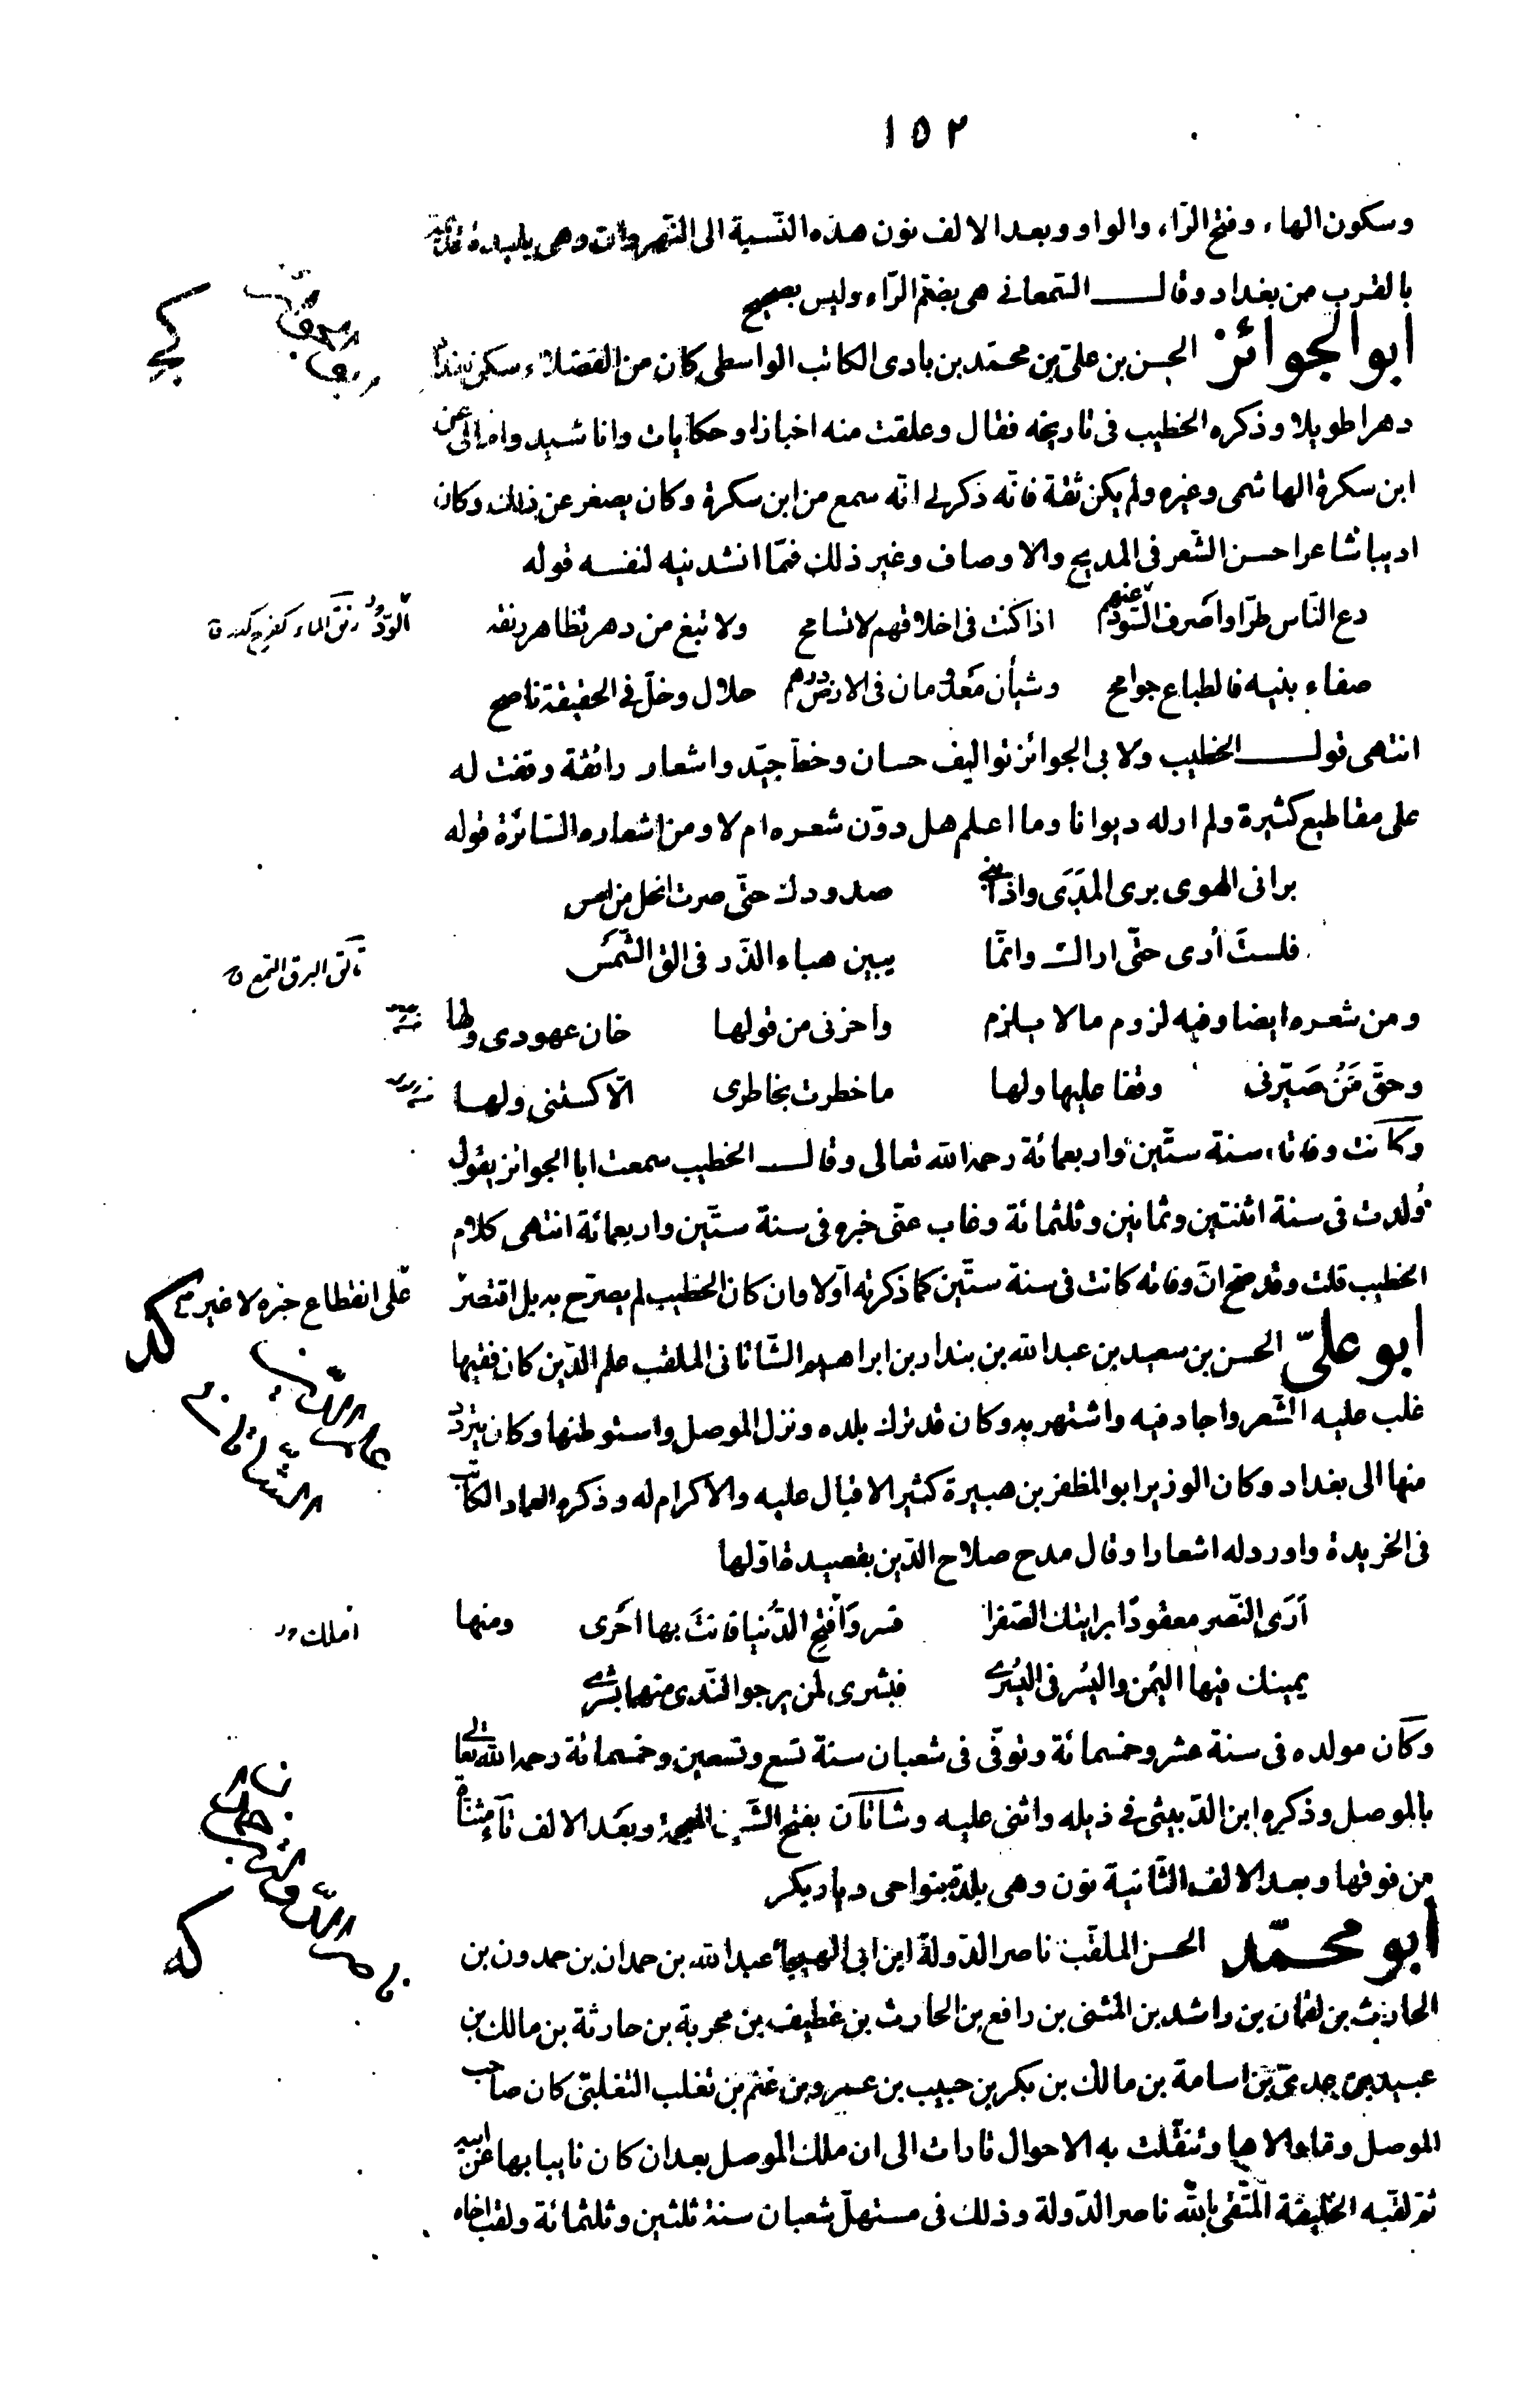 ١٥٢
وسكون الهاء وفتح الرّاء والواو وبعد الالف نون هذه النّسبة الى النّهروان وهى بليدة قديمة
بالقرب من بغداد وقال السّمعانى هى بضمّ الرّاء وليس بصحيح
ابو الجوائز الحسن بن علىّ بن محمّد بن بادى الكاتب الواسطى كان من الفضلاء سكن بغداد
دهرا طويلا وذكره الخطيب فى تاريخه فقال وعلقت منه اخبارا وحكايات واناشيد وامالى عن
ابن سكرة الهاشمى وغيره ولم يكن ثقة فانّه ذكر لى انّه سمع من ابن سكرة وكان يصغر عن ذلك وكان
اديبا شاعرا حسن الشّعر فى المديح والاوصاف وغير ذلك فممّا انشدنيه لنفسه قوله
دع النّاس طرّا واصرف الودّ عنهم اذا كنت فى اخلاقهم لا تسامح ولا تبغ من دهر تظاهر رنقه
الودّ ود رنق الماء كفرح كدر ق
صفاء بنيه فالطباع جوامح وشيأن معدومان فى الارض درهم حلال وخلّ فى الحقيقة ناصح
انتهى قول الخطيب ولابى الجوائز تواليف حسان وخطّ جيّد واشعار رائقة وقفت له
على مقاطيع كثيرة ولم ار له ديوانا وما اعلم هل دوّن شعره ام لا ومن اشعاره السّائرة قوله
برانى الهوى برى المدى واذابنى صدودك حتّى صرت انحل من امس
فلست أرى حتّى اراك وانّما يبين هباء الذّر فى الق الشّمس
تألق البرق التمع ق
ومن شعره ايضا وفيه لزوم ما لا يلزم واحزنى من قولها خان عهودى ولها
وحقّ مَنْ صَيّرنى وقفا عليها ولها ما خطرت بخاطرى الّا كستنى ولها
وكانت وفاته سنة ستّين واربعمائة رحمه الله تعالى وقال الخطيب سمعت ابا الجوائز يقول
ولدت فى سنة اثنتين وثمانين وثلثمائة وغاب عنّى خبره فى سنة ستّين واربعمائة انتهى كلام
الخطيب قلت وقد صحّ انّ وفاته كانت فى سنة ستّين كما ذكرته اوّلا وان كان الخطيب لم يصرّح به بل اقتصر
على انقطاع خبره لا غير
كد
ابو علىّ الحسن بن سعيد بن عبد الله بن بندار بن ابراهيم الشّاتانى الملقب علم الدّين كان فقيها
علم الدّين الشّاتانى
غلب عليه الشّعر واجاد فيه واشتهر به وكان قد ترك بلده ونزل الموصل واستوطنها وكان يتردّد
منها الى بغداد وكان الوزير ابو المظفر بن هبيرة كثير الاقبال عليه والاكرام له وذكره العماد الكاتب
فى الخريدة واورد له اشعارا وقال مدح صلاح الدّين بقصيدة اوّلها
أرَى النّصر معقودًا برايتك الصّفرا فسر وَافْتح الدّنيا فانتَ بها احْرى ومنها
املك ود
يمينك فيها اليُمن واليُسر فى اليُسرى فبشرى لمن يرجو النّدى منهما بشرى
وكان مولده فى سنة عشر وخمسمائة وتوفّى فى شعبان سنة تسع وتسعين وخمسمائة رحمه الله تعالى
بالموصل وذكره ابن الدّبيثى فى ذيله واثنى عليه وشاتان بفتح الشّين المعجمة وبعد الالف تآء مثنّاة
من فوقها وبعد الالف الثّانية نون وهى بلدة بنواحى ديار بكر
ناصر الدّولة
كه
ابو محمّد الحسن الملقّب ناصر الدّولة ابن ابى الهيجاء عبد الله بن حمدان بن حمدون بن
الحارث بن لقمان بن راشد بن المثنى بن رافع بن الحارث بن غطيف بن محربة بن حارثة بن مالك بن
عبيد بن عدىّ بن اسامة بن مالك بن بكر بن حبيب بن عمرو بن غنم بن تغلب التغلبىّ كان صاحب
الموصل وما والاها وتنقّلت به الاحوال تارات الى ان ملك الموصل بعد ان كان نايبا بها عن ابيه
ثمّ لقّبه الخليفة المتّقى بالله ناصر الدّولة وذلك فى مستهلّ شعبان سنة ثلثين وثلثمائة ولقب اخاه